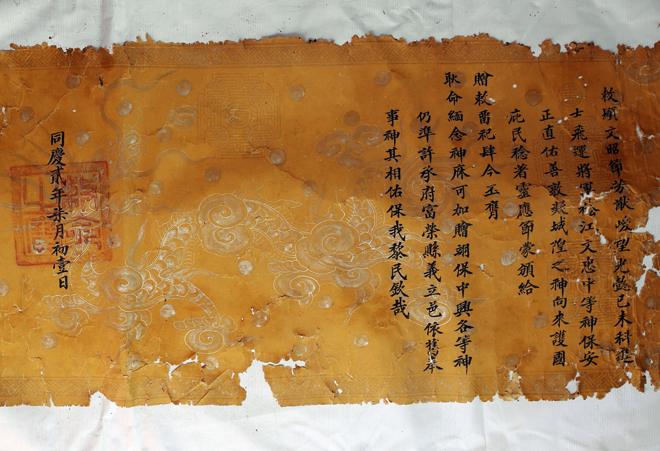 敕顯文昭節芳猷嚶望尤懿己未科進
士飛運將軍松江文忠中等神保安
正直佑善敦凝城隍之神向來護國
庇民稔著靈應節蒙頒給
贈敕留祀肆今丕膺
耿命緬念神庥可加贈翊保中興各等神
仍準許承府富榮縣義立邑依舊奉
事神其相佑保我黎民欽哉
同慶貳年柒月初壹日